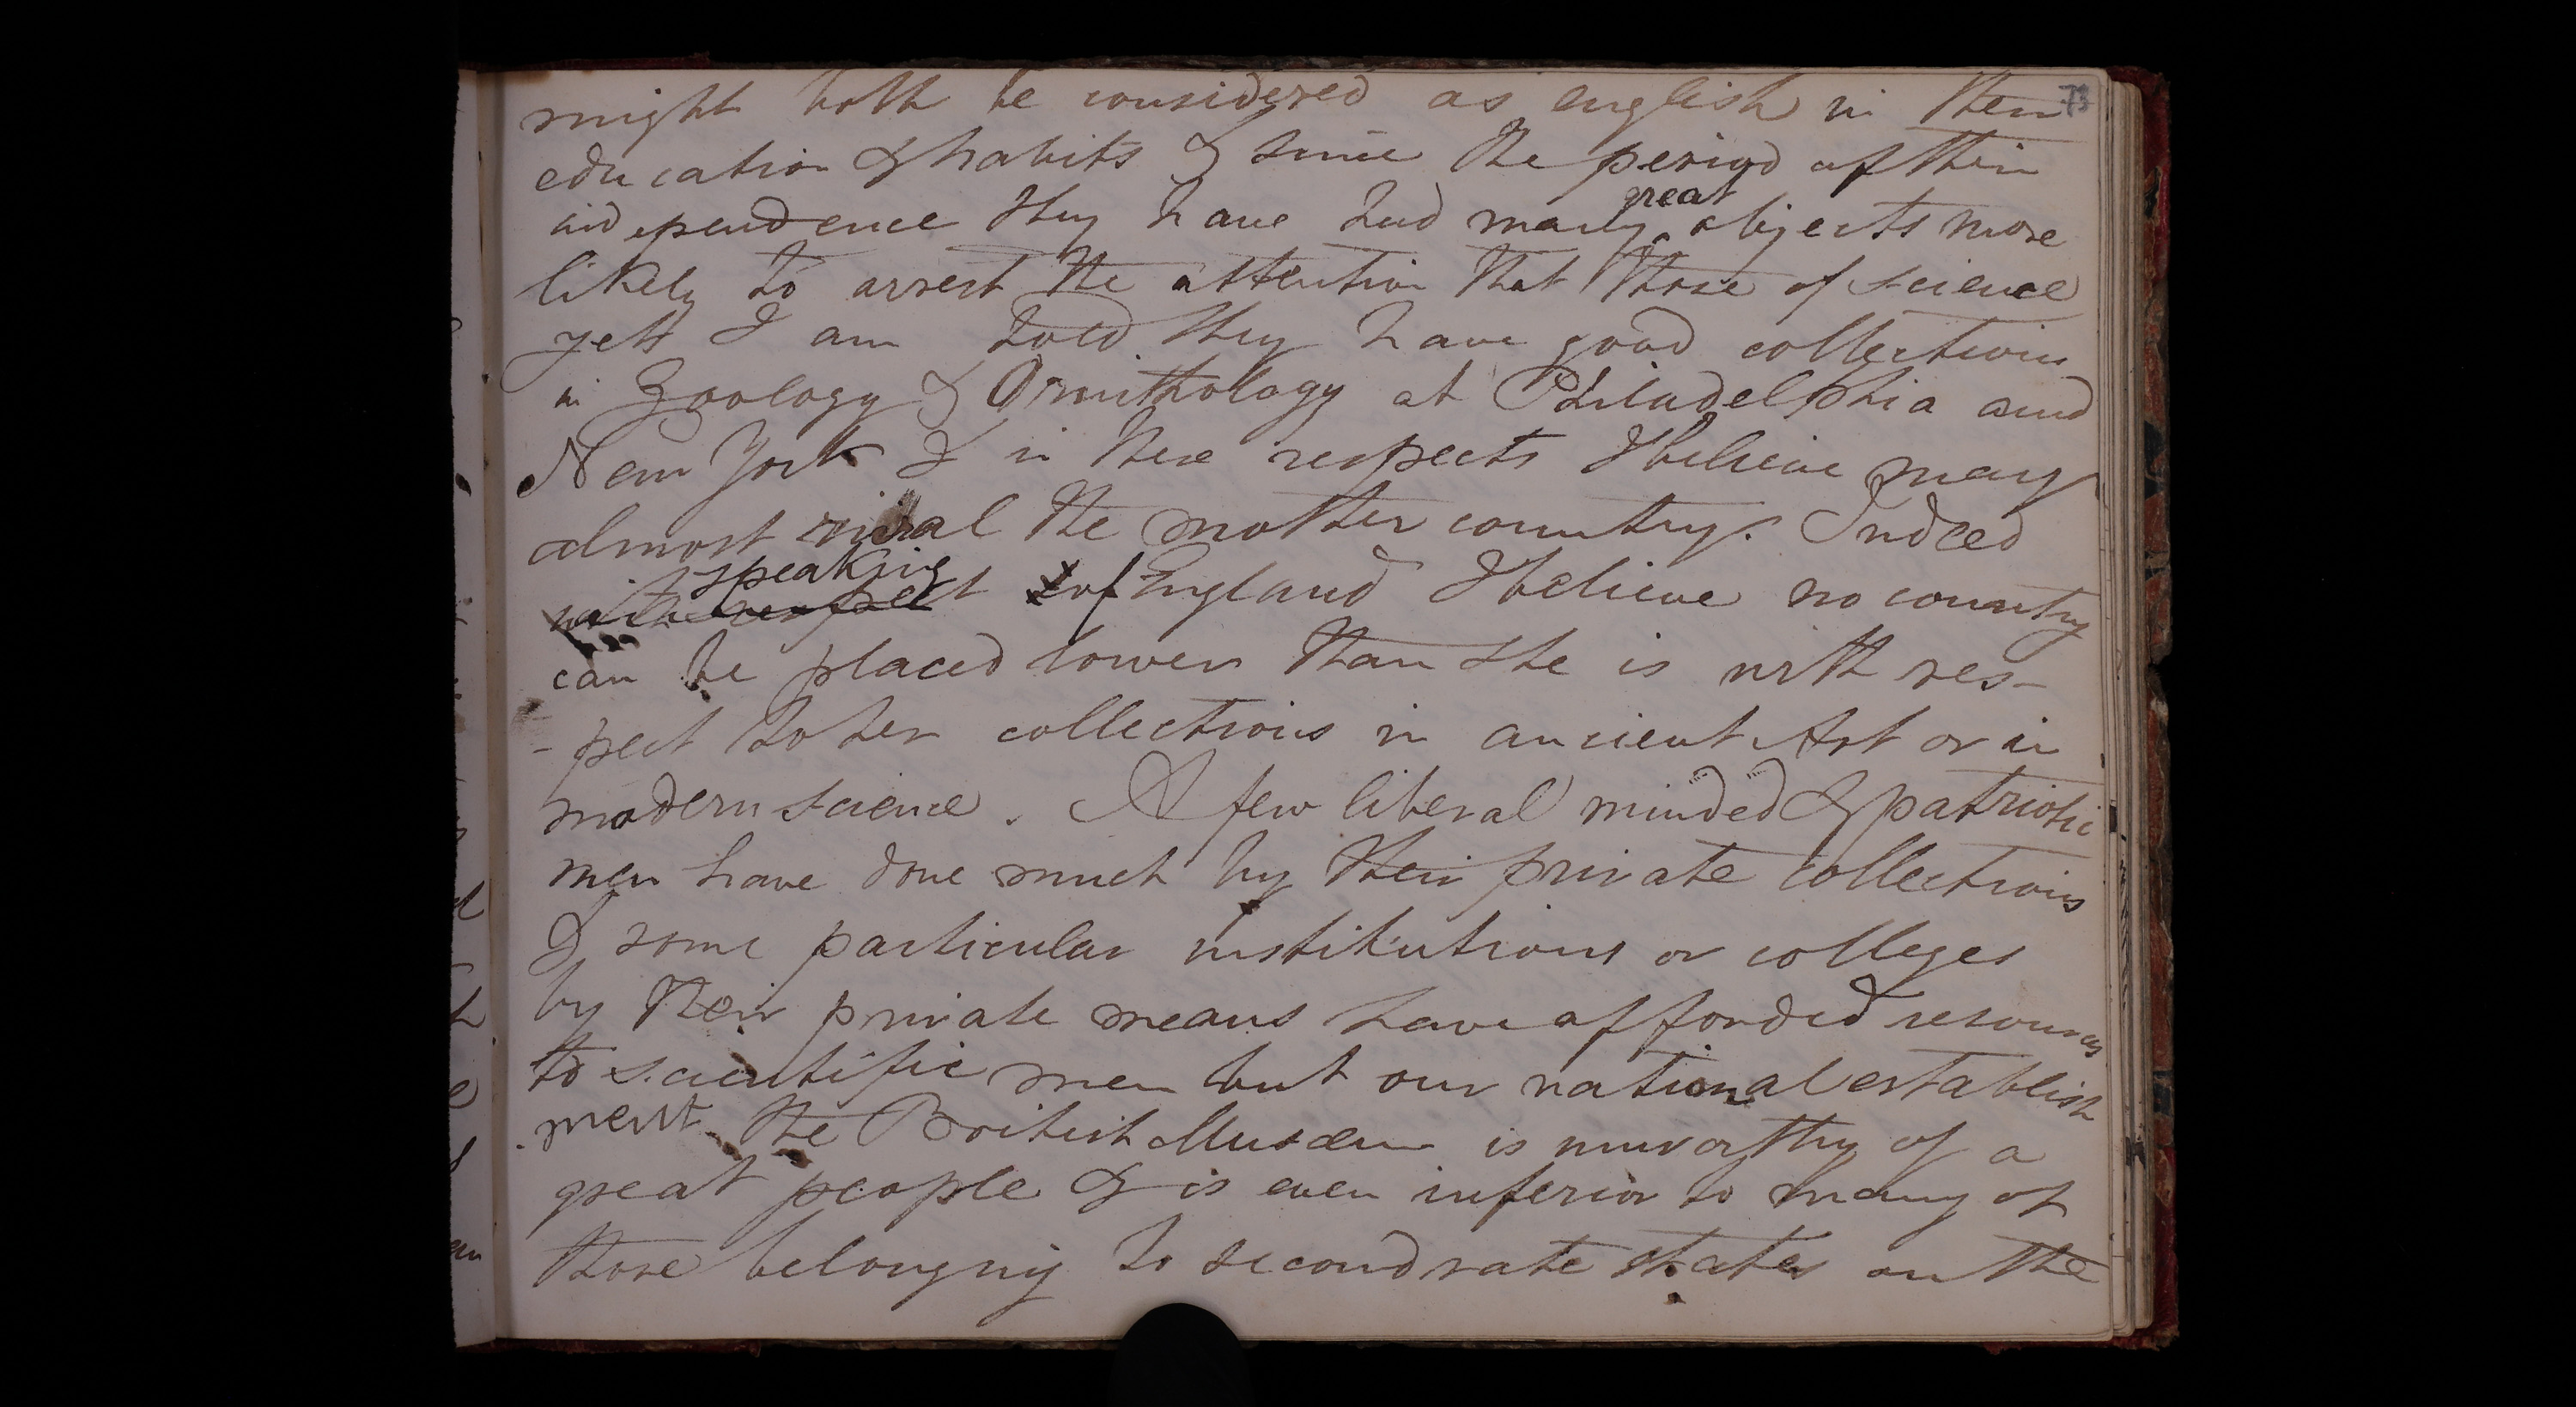 73
might both be considered as english in their
education & habits & since the period of their
independence they have had many great objects more
likely to arrest the attention that those of science
yett I am told they have good collections
in Zoology & Ornithology at Philadelphia and
New York & in these respects I believe may
almost rival the mother country. Indeed
with respect speaking of England I believe no country
can be placed lower than she is with res-
-pect to her collections in ancient Art or in
modern science. A few liberal minded & patriotic
men have done much by their private collections
& some particular institutions or colleges
by their private means have afforded resources
to scientific men but our national establish
-ment the British Musæum is unworthy of a
great people & is even inferior to many of
those belonging to second rate states on the